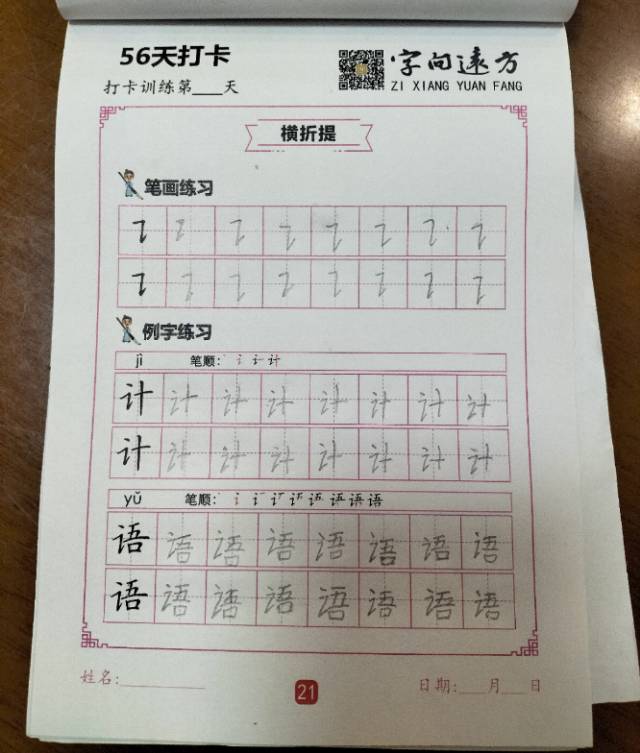 56天打卡
字向远方
打卡训练第___天
ZI XIANG YUAN FANG
横折提
笔画练习
㇊ ㇊ ㇊ ㇊ ㇊ ㇊ ㇊ ㇊
㇊ ㇊ ㇊ ㇊ ㇊ ㇊ ㇊ ㇊
例字练习
jì 笔顺:
计 计 计 计 计 计 计 计
计 计 计 计 计 计 计 计
yǔ 笔顺:
语 语 语 语 语 语 语 语
语 语 语 语 语 语 语 语
姓名:
21
日期:___月___日